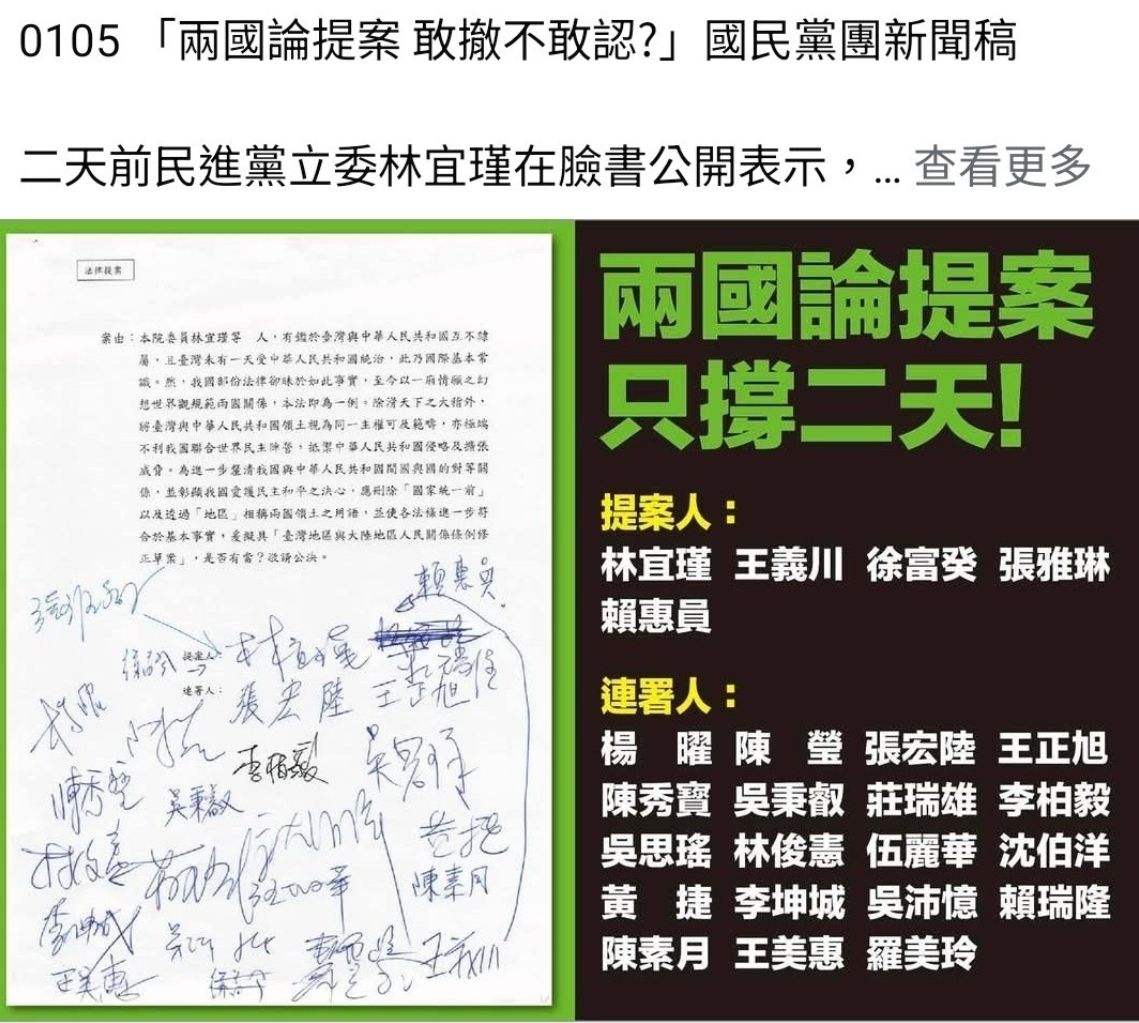 0105 「兩國論提案 敢撤不敢認?」國民黨團新聞稿
二天前民進黨立委林宜瑾在臉書公開表示，... 查看更多
法律提案
案由：本院委員林宜瑾等　人，有鑑於臺灣與中華人民共和國互不隸
屬，且臺灣未有一天受中華人民共和國統治，此乃國際基本常
識。然，我國部份法律卻昧於如此事實，至今以一廂情願之幻
想世界觀規範兩國關係，本法即為一例。除滑天下之大稽外，
將臺灣與中華人民共和國領土視為同一主權可及範疇，亦極端
不利我國聯合世界民主陣營，抵禦中華人民共和國侵略及擴張
威脅。為進一步釐清我國與中華人民共和國間國與國的對等關
係，並彰顯我國愛護民主和平之決心，應刪除「國家統一前」
以及透過「地區」相稱兩國領土之用語，並使各法條進一步符
合於基本事實，爰擬具「臺灣地區與大陸地區人民關係條例修
正草案」，是否有當？敬請公決。
賴惠員
提案人：林宜瑾
連署人：張宏陸 王正旭
李柏毅 吳思瑤
陳秀寶 吳秉叡
林俊憲 黃捷
伍麗華 陳素月
李坤城
王美惠 王義川
兩國論提案
只撐二天!
提案人：
林宜瑾 王義川 徐富癸 張雅琳
賴惠員
連署人：
楊　曜 陳　瑩 張宏陸 王正旭
陳秀寶 吳秉叡 莊瑞雄 李柏毅
吳思瑤 林俊憲 伍麗華 沈伯洋
黃　捷 李坤城 吳沛憶 賴瑞隆
陳素月 王美惠 羅美玲